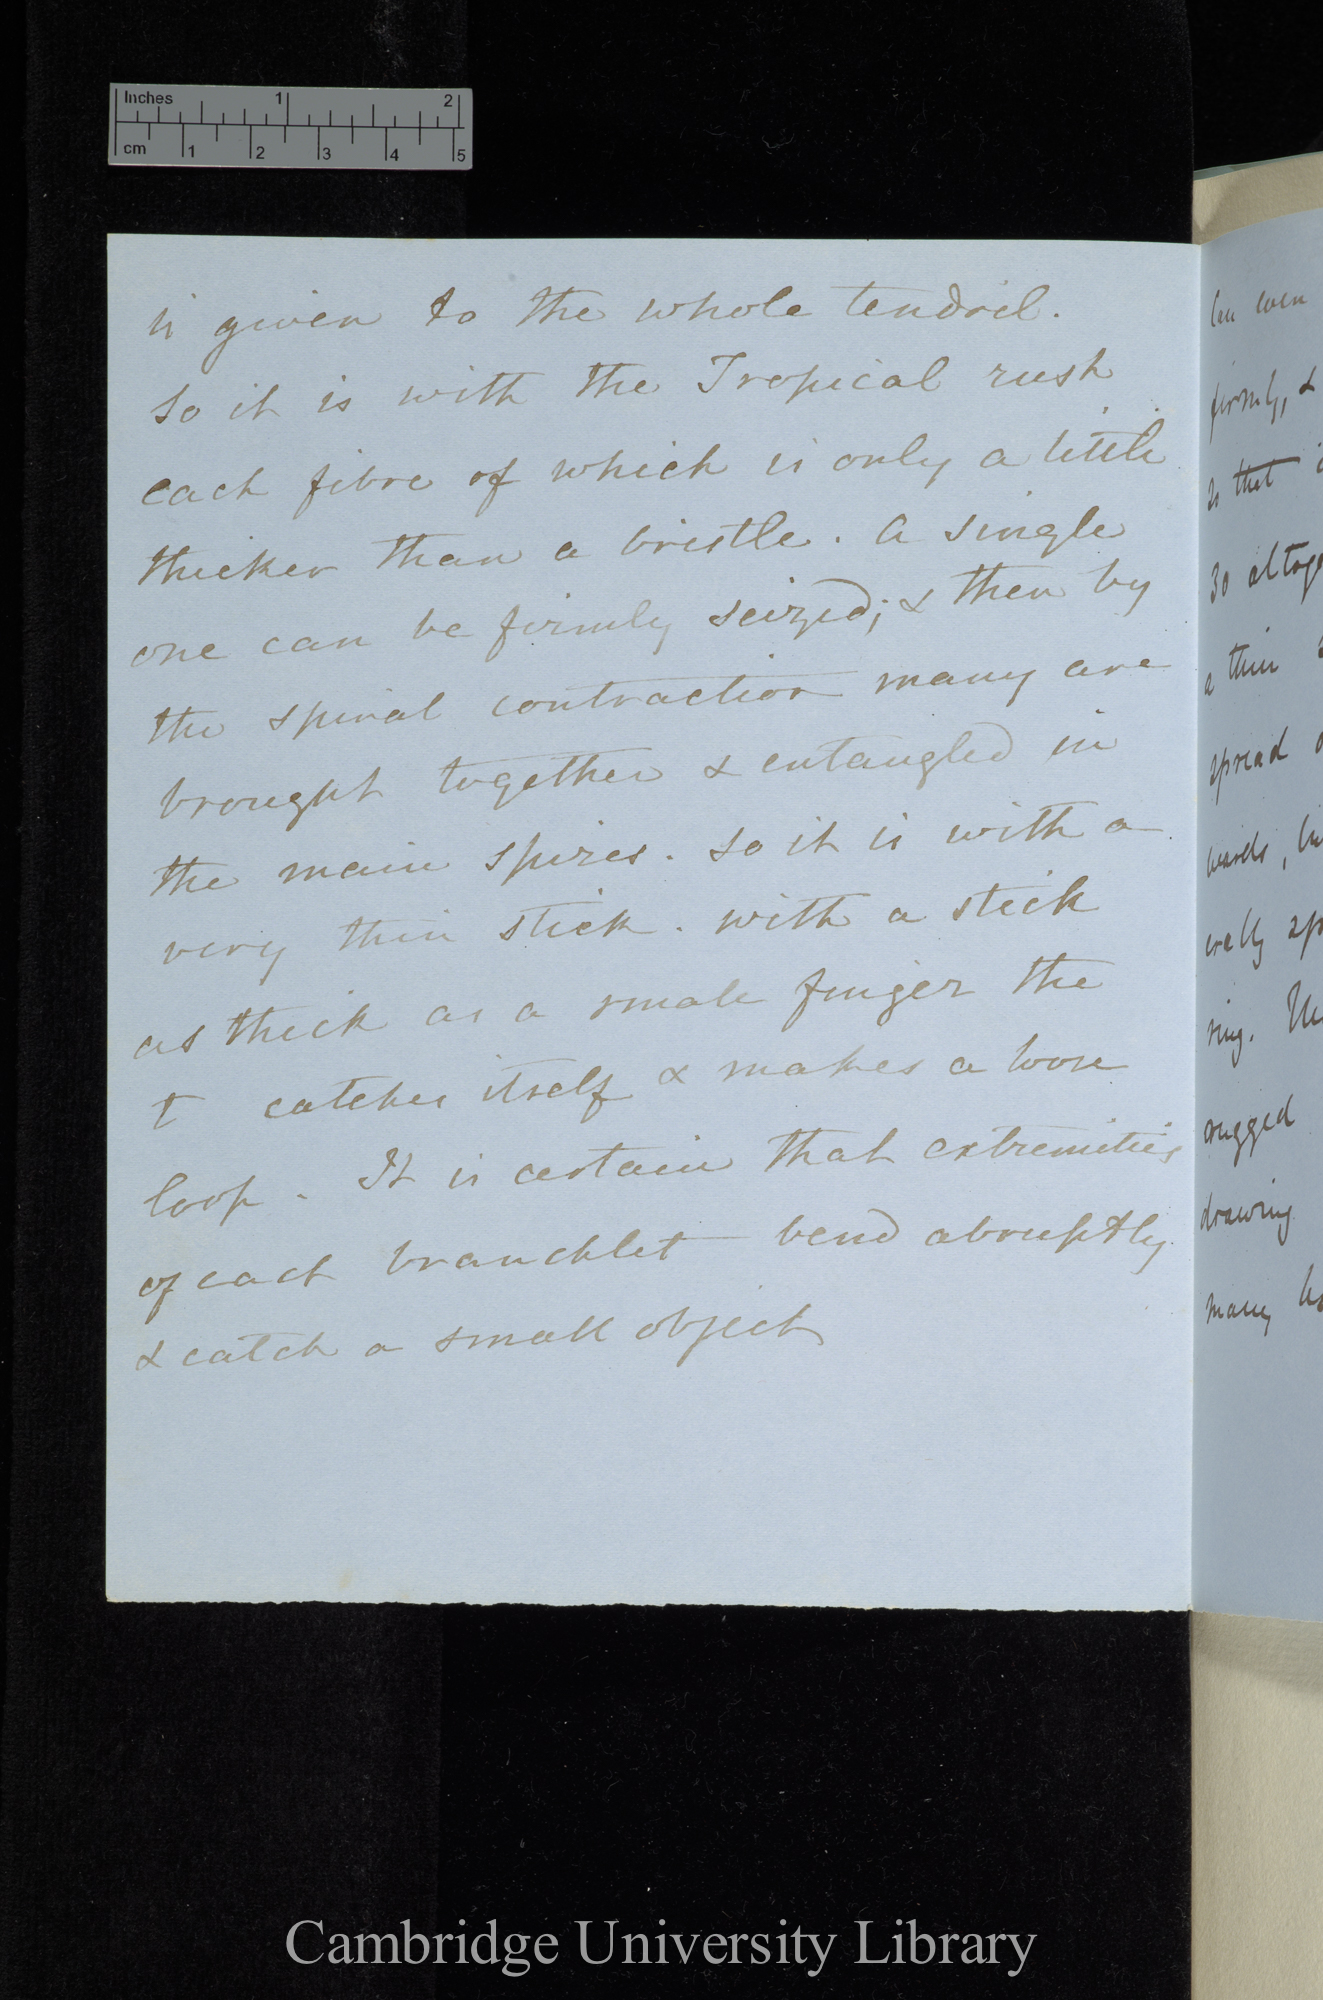 Inches 1 2
cm 1 2 3 4 5
is given to the whole tendril.
So it is with the Tropical rush
each fibre of which is only a little
thicker than a bristle. A single
one can be firmly seized; & then by
the spiral contraction many are
brought together & entangled in
the main spires. So it is with a
very thin stick. With a stick
as thick as a small finger the
T catches itself & makes a loose
loop. It is certain that extremities
of each branchlet bend abruptly
& catch a small object
firmly, &
is that
30 altoge
a thin
spread
wards,
ring.
rugged
drawing
many
Cambridge University Library